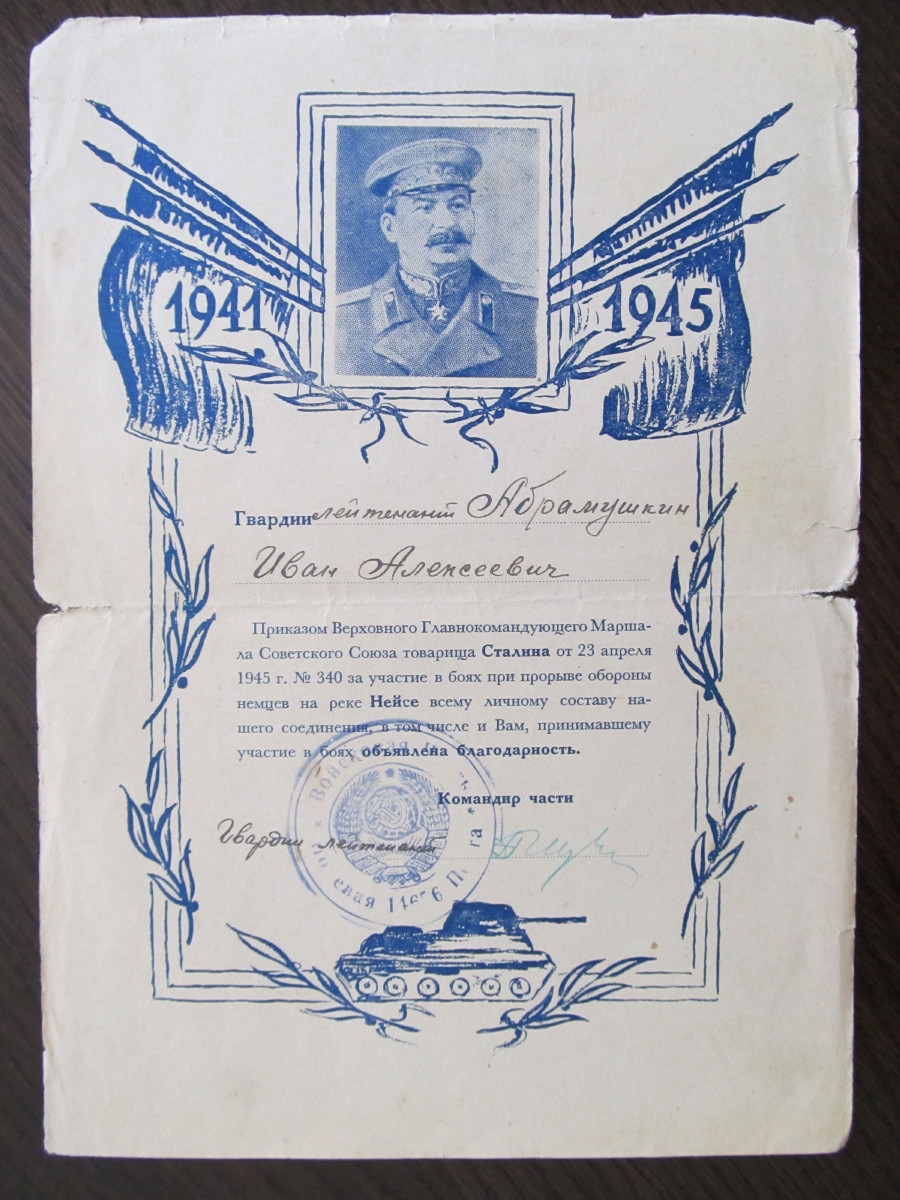 1941
1945
Гвардии лейтенант Абрамушкин
Иван Алексеевич
Приказом Верховного Главнокомандующего Марша-
ла Советского Союза товарища Сталина от 23 апреля
1945 г. № 340 за участие в боях при прорыве обороны
немцев на реке Нейсе всему личному составу на-
шего соединения, в том числе и Вам, принимавшему
участие в боях объявлена благодарность.
Командир части
Гвардии лейтенант